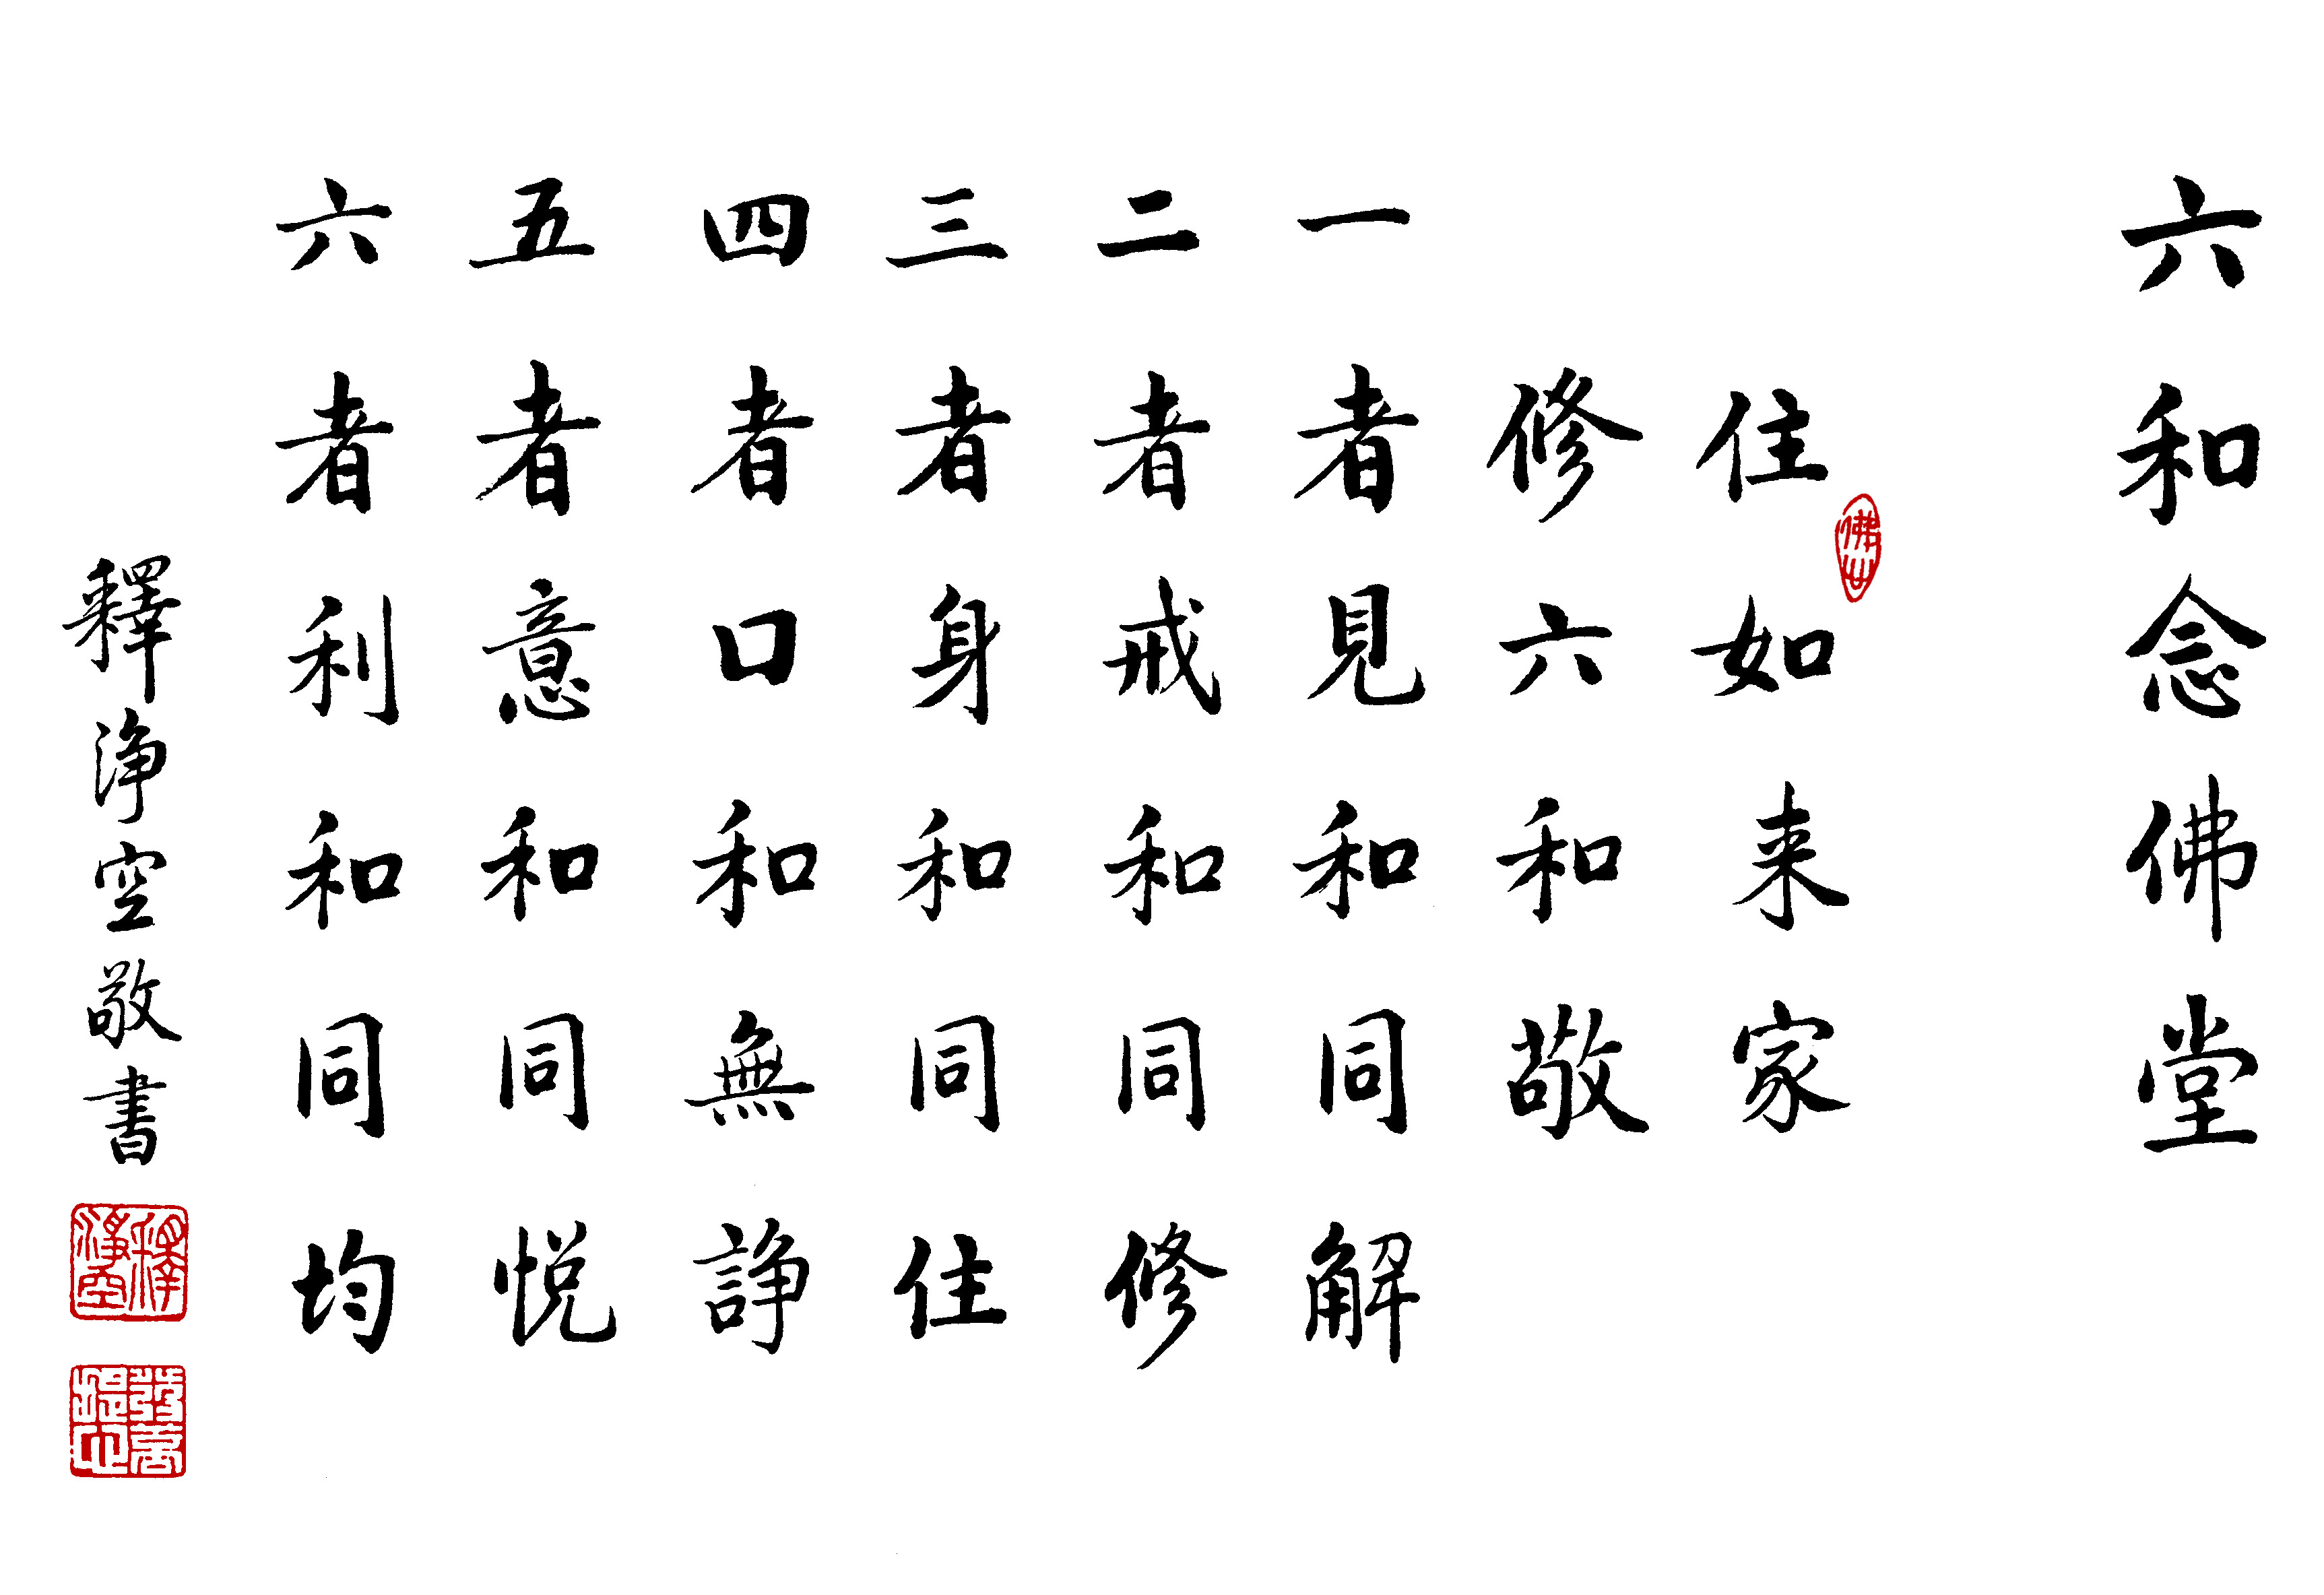 六和念佛堂
住如来家
修六和敬
一者見和同解
二者戒和同修
三者身和同住
四者口和無諍
五者意和同悦
六者利和同均
釋淨空敬書
釋淨空